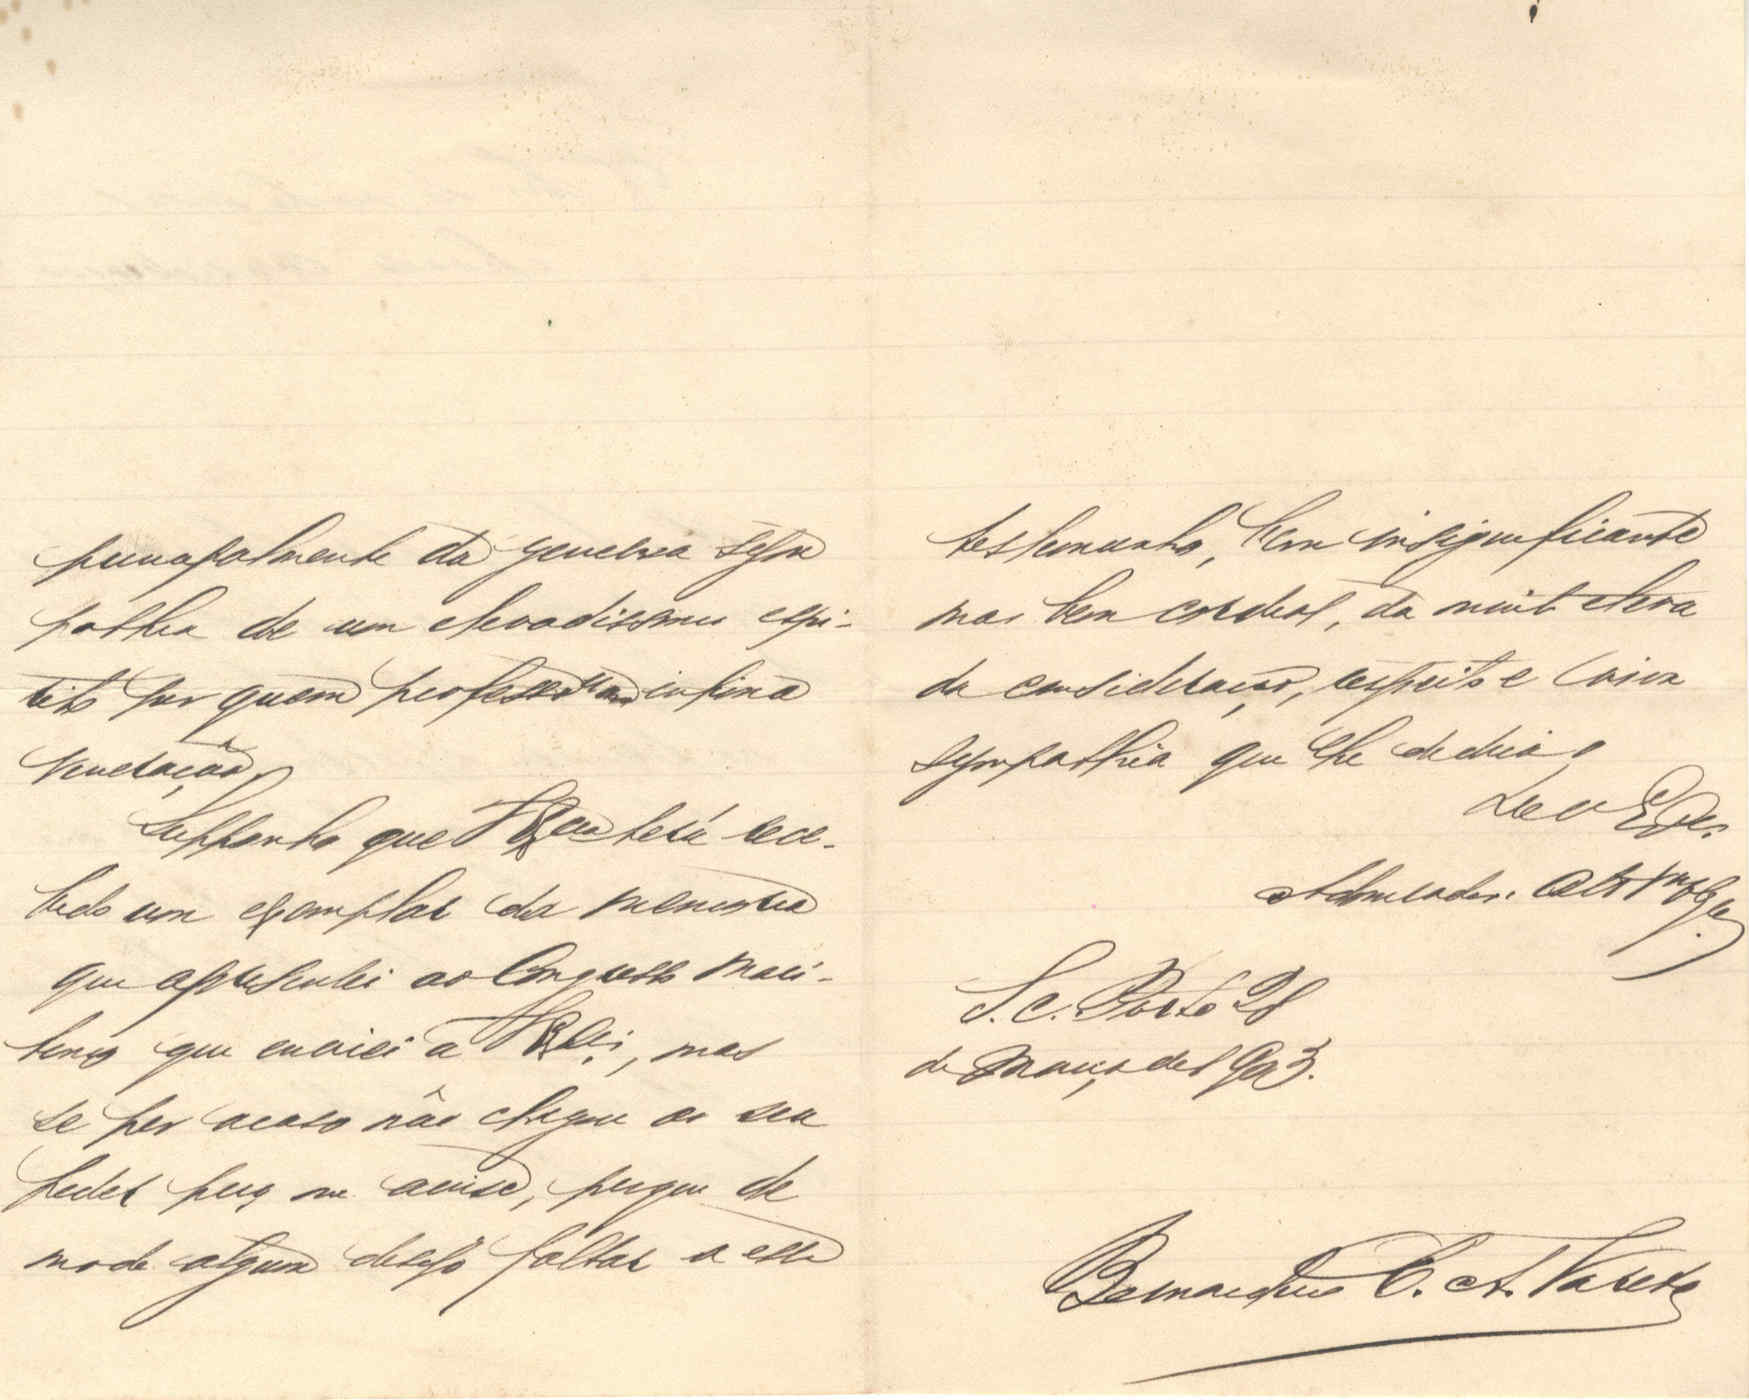 principalmente da generosa sym
pathia de um elevadissimo espi-
rito por quem professo infina
veneração.
Supponho que V Exa terá rece-
bido um exemplar da memoria
que apresentei ao Congresso Mari-
timo que enviei a V Exa, mas
se por acaso não chegou ao seu
poder peço me avise, porque de
modo algum desejo faltar a este
testemunho, bem insignificante
mas bem cordial, da muito eleva
da consideração, respeito e viva
sympathia que lhe dedica o
De V Exa
Admirador
S. C. Porto 28
de Março de 1903.
Bernardino C. A. Varela